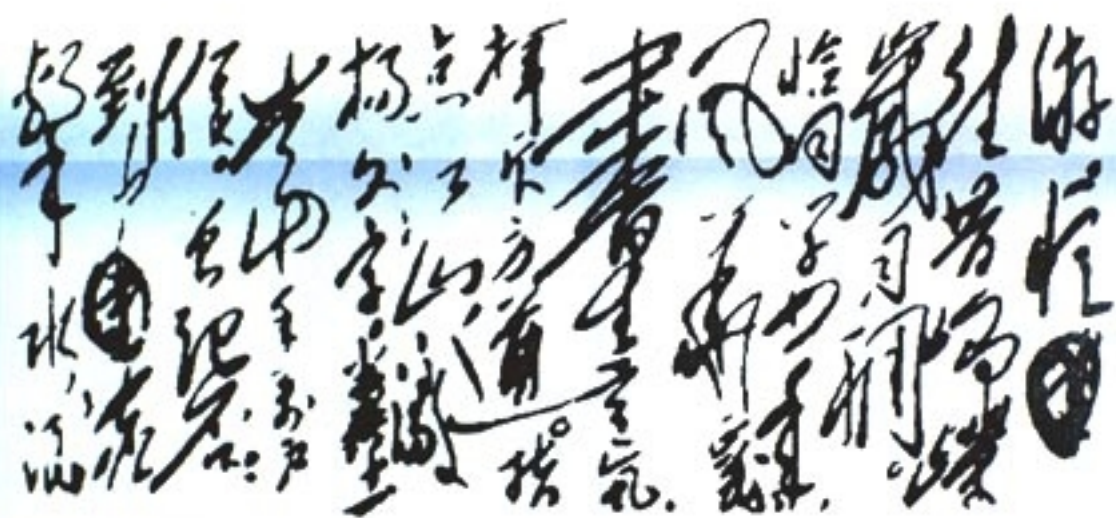 游。憶
往昔崢嶸
歲月稠。
恰同學少年,
風華正茂
書生意氣,
揮斥方遒。指
点江山,激
揚文字,糞土
當年万户
侯。曾記否,
到中流
擊水,浪